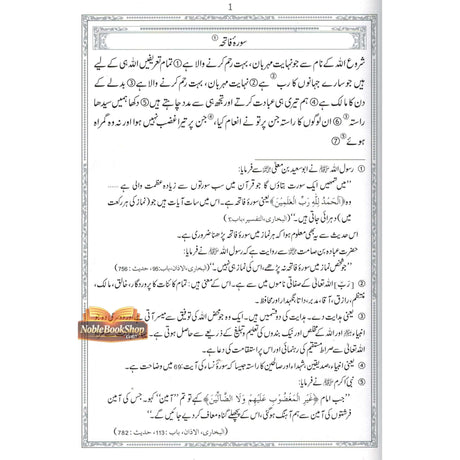 1
سورۂ فاتحہ ①
شروع اللہ کے نام سے جو نہایت مہربان، بہت رحم کرنے والا ہے ① تمام تعریفیں اللہ ہی کے لیے
ہیں جو سارے جہانوں کا رب ② ہے ② نہایت مہربان، بہت رحم کرنے والا ہے ③ بدلے کے
دن کا مالک ہے ④ ہم تیری ہی عبادت کرتے اور تجھ ہی سے مدد چاہتے ہیں ⑤ دکھا ہمیں سیدھا
راستہ ③ ⑥ ان لوگوں کا راستہ جن پر تو نے انعام کیا، ④ جن پر تیرا غضب نہیں ہوا اور نہ وہ گمراہ
ہوئے ⑤ ⑦
① رسول اللہ ﷺ نے ابو سعید بن معلیٰ ؓ سے فرمایا:
”میں تمھیں ایک سورت بتاؤں گا جو قرآن میں سب سورتوں سے زیادہ عظمت والی ہے ——
وہ ﴿الْحَمْدُ لِلَّهِ رَبِّ الْعٰلَمِيْنَ﴾ یعنی سورۂ فاتحہ ہے۔ اس میں سات آیات ہیں جو (نماز کی ہر رکعت
میں) دہرائی جاتی ہیں۔“ (البخاری، التفسیر، باب:
اس حدیث سے یہ بھی معلوم ہوا کہ ہر نماز میں سورۂ فاتحہ پڑھنا ضروری ہے۔
حضرت عبادہ بن صامت ؓ سے روایت ہے کہ رسول اللہ ﷺ نے فرمایا:
”جو شخص نماز میں سورۂ فاتحہ نہ پڑھے، اس کی نماز ہی نہیں۔“ (البخاری، الاذان، باب: 95، حدیث: 756)
② [رَبّ] اللہ تعالیٰ کے صفاتی ناموں میں سے ہے۔ اس کے معنی ہیں: تمام کائنات کا پروردگار، خالق، مالک،
منتظم، رازق، آقا، مدبر، داتا، نگہدار اور محافظ۔
③ یعنی راہ ہدایت دے۔ ہدایت کی دو قسمیں ہیں۔ ایک وہ جو محض اللہ کی توفیق سے میسر آتی ہے
انبیاء اور اللہ کے مخلص اور نیک بندوں کی تعلیم و تبلیغ کے ذریعے سے حاصل ہوتی ہے۔
اللہ تعالیٰ سے صراط مستقیم کی رہنمائی اور اس پر استقامت کی دعا ہے۔
④ یعنی انبیاء، صدیقین، شہداء اور صالحین کا راستہ جس کی سورۂ نساء کی آیت: 69 میں وضاحت ہے۔
⑤ نبی اکرم ﷺ نے فرمایا:
”جب امام ﴿غَيْرِ الْمَغْضُوْبِ عَلَيْهِمْ وَلَا الضَّآلِّيْنَ﴾ کہے تو تم ”آمین“ کہو۔ جس کی آمین
فرشتوں کی آمین سے ہم آہنگ ہوگی، اس کے پچھلے گناہ معاف کر دیے جائیں گے۔“
(البخاری، الاذان، باب: 113، حدیث: 782)
NobleBookShop
.com